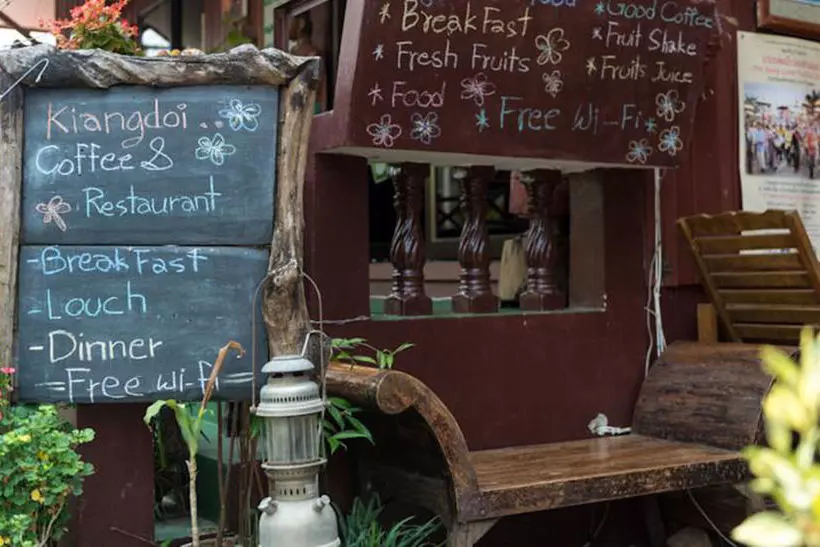 Kiangdoi
Coffee &
Restaurant
-BreakFast
-Louch
-Dinner
=Free wi-fi=
BreakFast
Fresh Fruits
Food
Food
Good Coffee
Fruit Shake
Fruits Juice
Free Wi-Fi